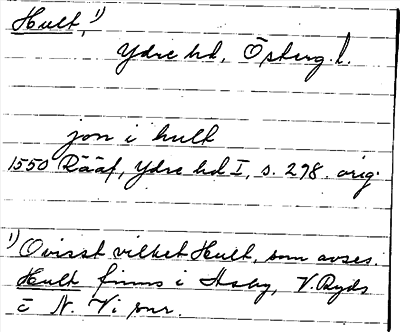 Hult,¹⁾
Ydre hd, Österg. l.
jon i hult
1550 Rääf, Ydre hd I, s. 298. orig.
¹⁾ Ovisst vilket Hult, som avses.
Hult finns i Asby, V. Ryds
o N. Vi snr.